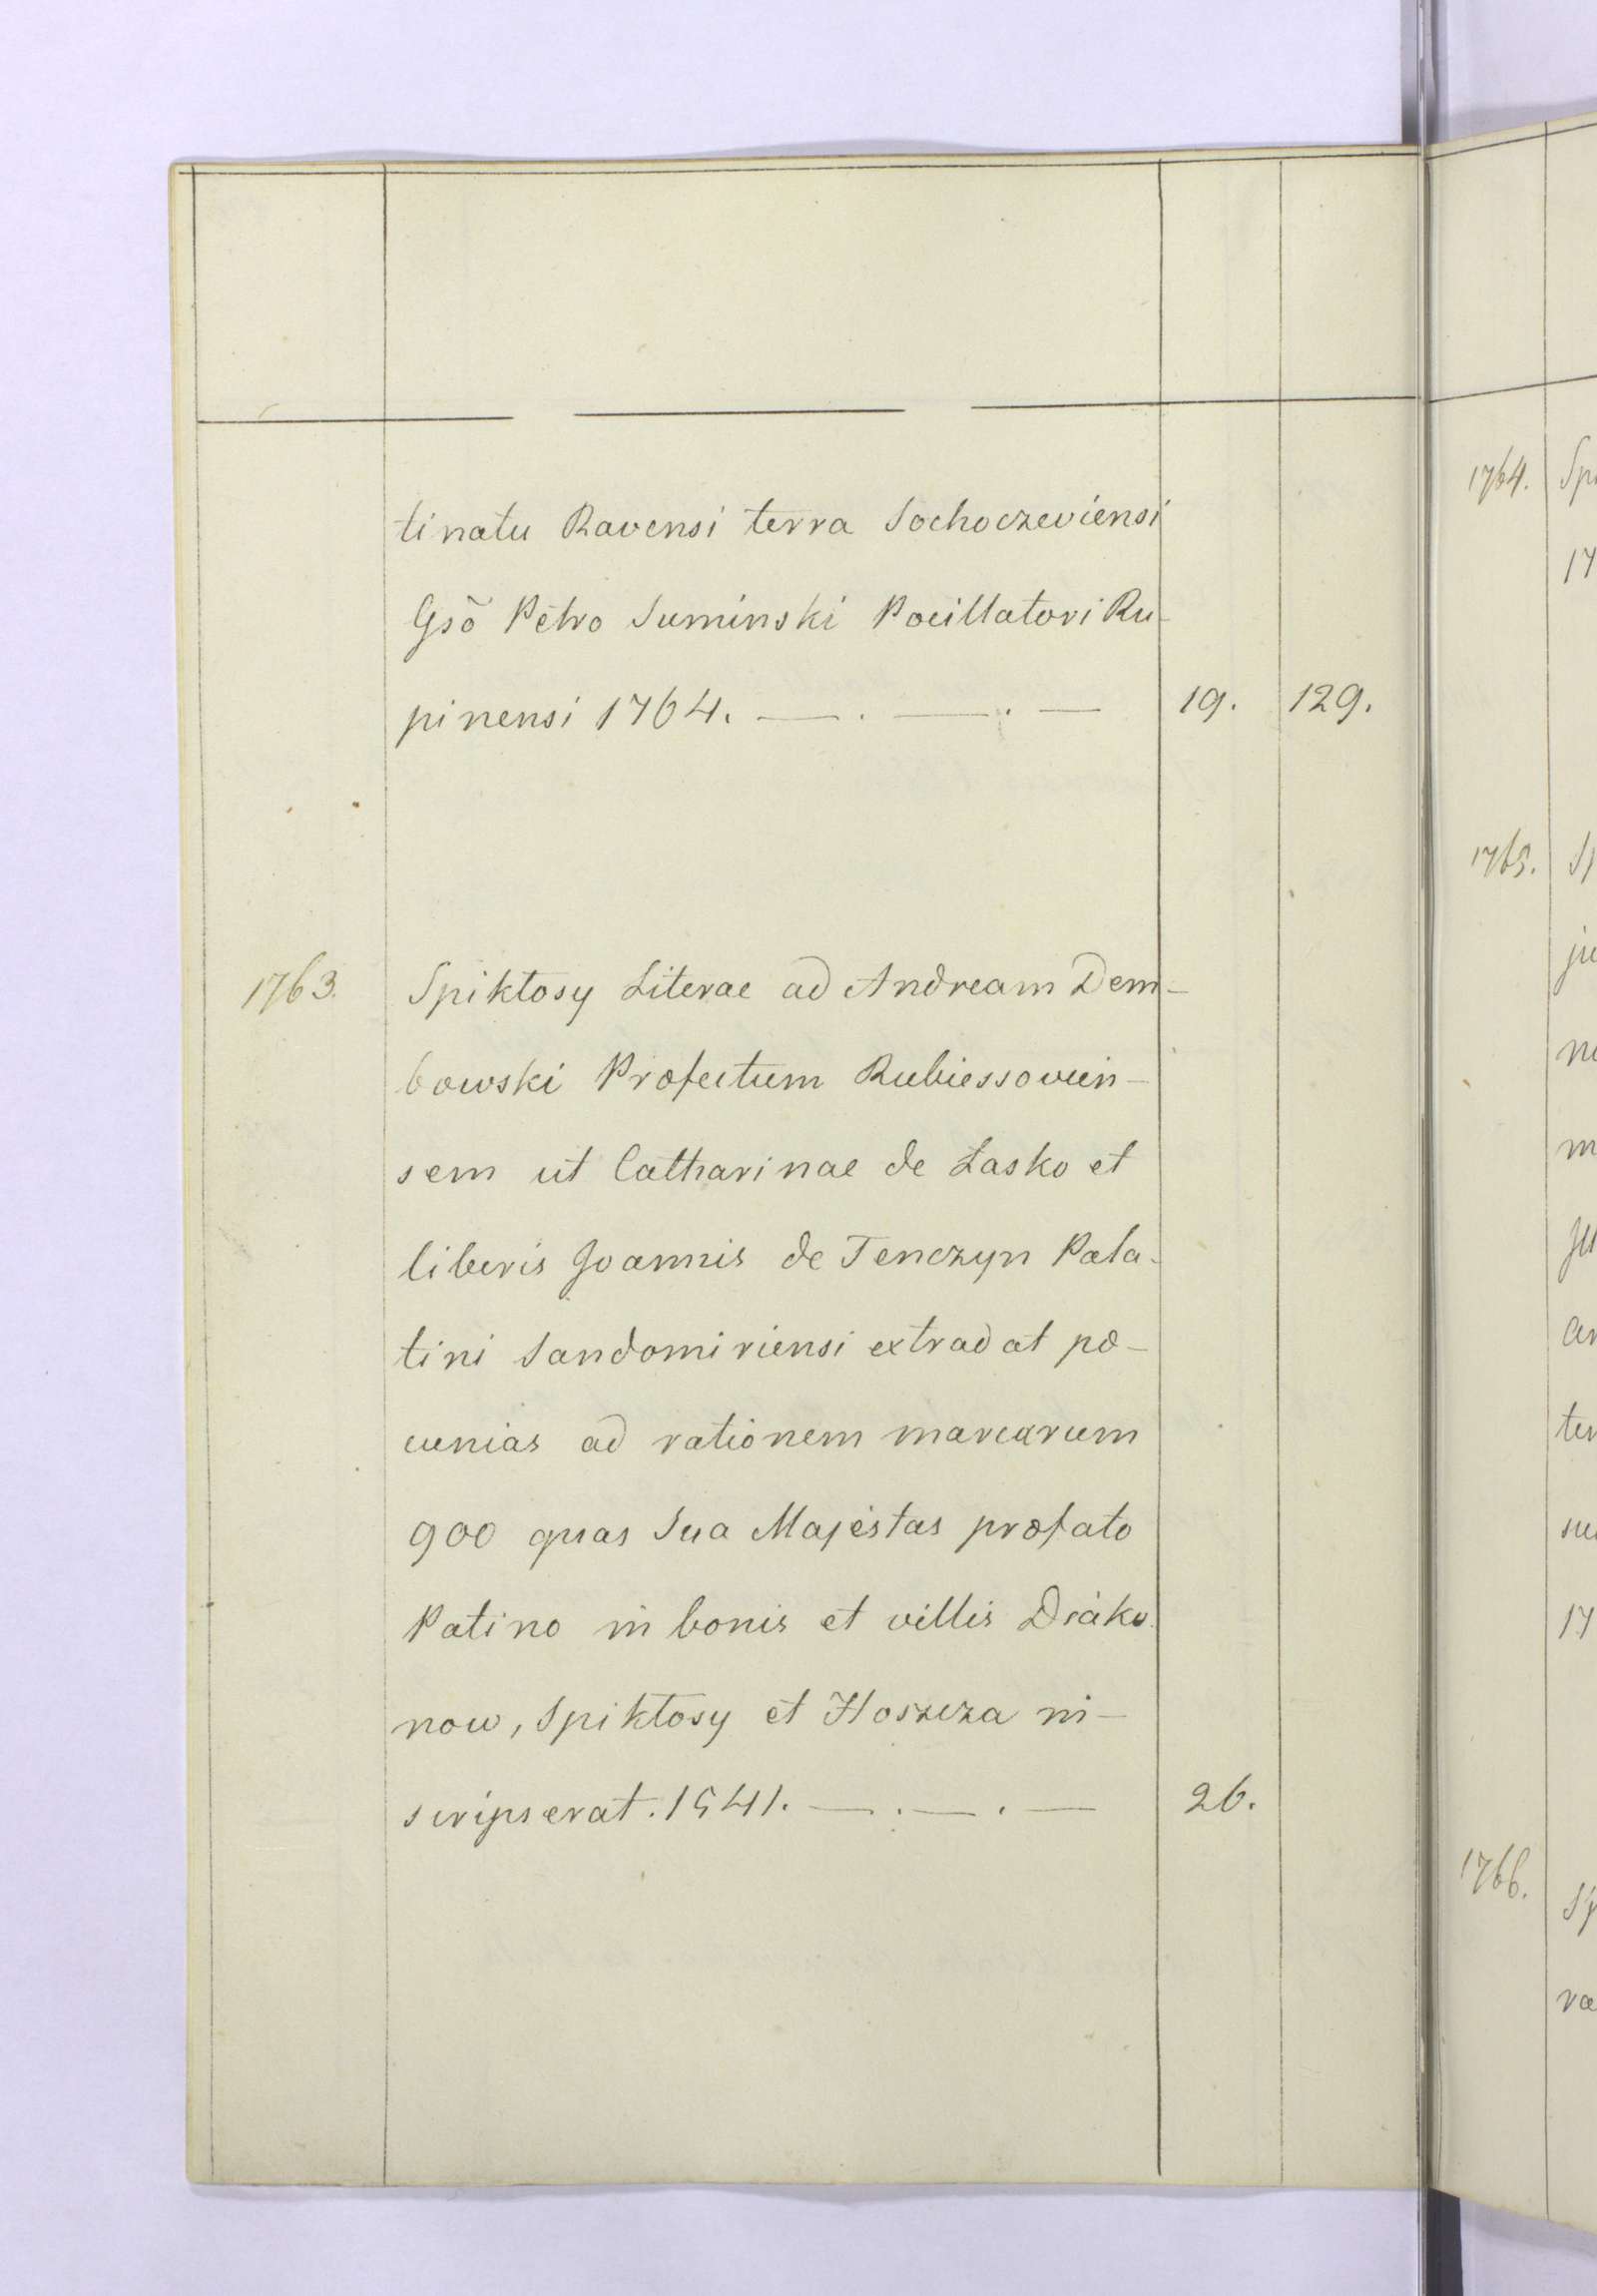 tinatu Ravensi terra Sochoczeviensi
Gsō Petro Suminski Pocillatori Ru-
pinensi 1764. — . — . — 19. 129.
1763. Spiktosy Literae ad Andream Dem-
bowski Præfectum Rubiessovien-
sem ut Catharinae de Łasko et
liberis Joannis de Tenczyn Pala-
tini Sandomiriensi extradat pe-
cunias ad rationem marcarum
900 quas Sua Majestas præfato
Patino in bonis et villis Diáko
now, Spiktosy et Hoszcza in-
scripserat. 1541. — . — . — 26.
1764. Sp
17
1765. Sp
ju
m
ter
su
17
1766. Sp
ra